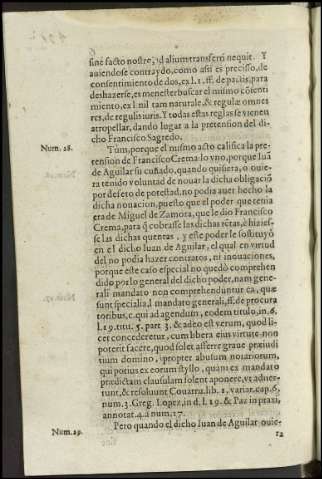 sine facto nostro, id alium transferri nequit. Y
auiendose contraydo, como assi es preciso, de
consentimiento de dos, ex l. 1. ff. de pactis, para
deshazerse, es menester buscar el mismo cõsenti
miento, ex l. nil tam naturale, & regula omnes
res, de regulis iuris. Y todas estas reglas se vienen
atropellar, dando lugar a la pretension del di-
cho Francisco Sagredo.
Num. 28.
Tùm, porque el mismo acto califica la pre-
tension de Francisco Crema: lo vno, porque Iuã
de Aguilar su cuñado, quando quisiera, o ouie-
ra tenido voluntad de nouar la dicha obligaciõ
por defeto de potestad, no podia auer hecho la
dicha nouacion, puesto que el poder que tenia
era de Miguel de Zamora, que le dio Francisco
Crema, para q̃ cobrasse las dichas rẽtas, è hizies-
se las dichas quentas, y este poder le sostituyò
en el dicho Iuan de Aguilar, el qual en virtud
del no podia hazer contratos, ni inouaciones,
porque este caso especial no quedò comprehen
dido por lo general del dicho poder, nam gene-
rali mandato non comprehenduntur ea, quæ
sunt specialia, l. mandato generali, ff. de procura
toribus, c. qui ad agendum, eodem titulo, in. 6.
l. 19. titu. 5. part. 3. & adeo est verum, quod li-
cet concederetur, cum libera eius virtute non
poterit facere, quod solet afferre graue præiudi
tium domino, propter abusum notariorum,
qui potius ex eorum styllo, quàm ex mandato
prædictam clausulam solent aponere, vt aduer-
tunt, & resoluunt Couarru. lib. 1. variar. cap. 6.
num. 3. Greg. Lopez, in d. l. 19. & Paz in praxi,
annotat. 4. à num. 17.
Num. 29.
Pero quando el dicho Iuan de Aguilar ouie-
ra